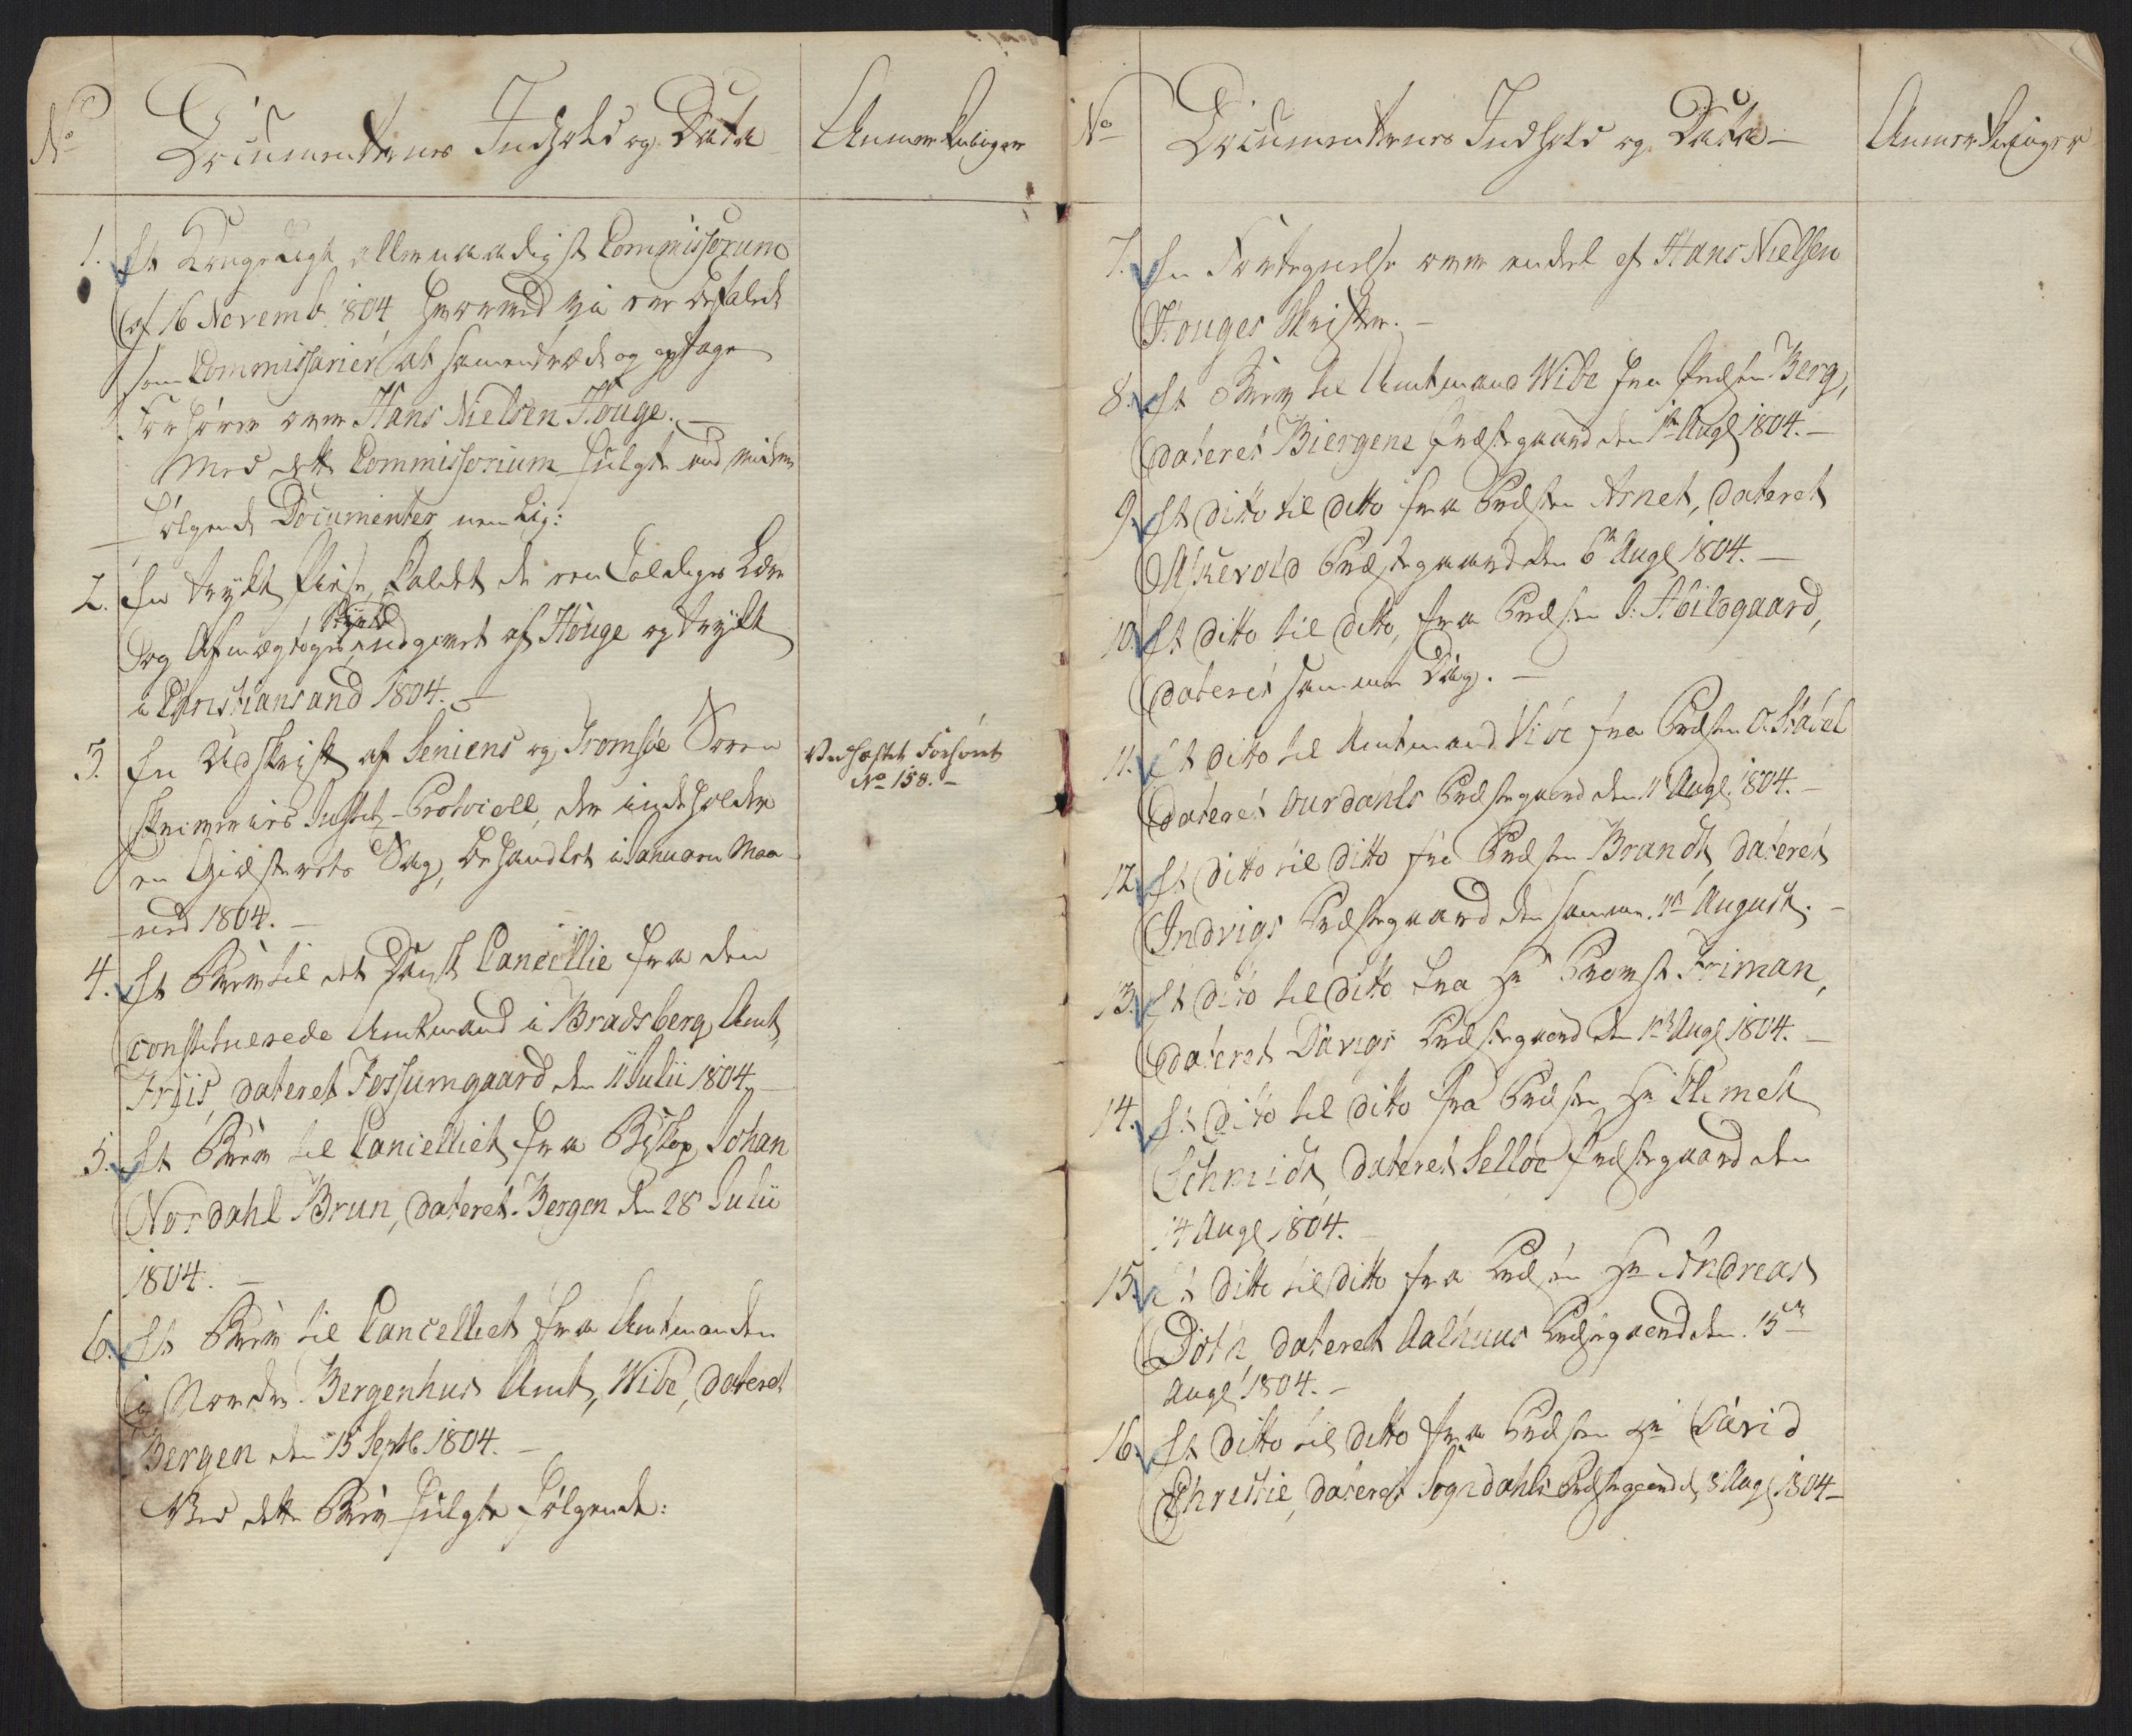 No
Documenternes Indhold og Data
Anmerkninger
1. Et Kongeligt allernaadigst Commissorum
af 16 Novemb. 1804, hvorved vi ere befalede
som Commissarier at sammentræde og optage
Forhører over Hans Nielsen Houge. —
Med dette Commissorium fulgte end videre
følgende Documenter, nemlig:
2. En trykt Piese, kaldet de een foldiges Lære
og Afmægtiges Styrke, udgivet af Houge og trykt
i Christiansand 1804. —
3. En Udskrift af Seniens og Tromsøe Soren
skriveries Justits-Protocoll, der indeholder
en Giæsterets Sag, behandlet i Januari Maa
ned 1804. —
Vedhæftet Forhöret
No 158. —
4. Et Brev til det Danske Cancellie fra den
constituerede Amtmand i Bradsberg Amt,
Friis, dateret Fossumgaard den 11 Julii 1804 —
5. Et Brev til Cancelliet fra Biskop Johan
Nordahl Brun, dateret Bergen den 28 Julii
1804. —
6. Et Brev til Cancelliet fra Amtmanden
i Nordre Bergenhus Amt, Wibe, dateret
Bergen den 15 Septb. 1804. —
Med dette Brev fulgte følgende:
No
Documenternes Indhold og Data —
Anmerkninger
7. En Fortegnelse over endel af Hans Nielsen
Houges Skrifter. —
8. Et Brev til Amtmand Wibe fra Præsten Berg,
dateret Biergene Præstegaard den 1te Augl 1804. —
9. Et ditto til ditto fra Præsten Arnet, dateret
Askevold Præstegaard den 6te Augl 1804. —
10. Et ditto til ditto, fra Præsten J. Hildgaard,
dateret samme Dag. —
11. Et ditto til Amtmand Vibe fra Præsten O. Stabel
dateret Ourdahls Præstegaard den 11 Augl 1804. —
12. Et ditto til ditto fra Præsten Brandt, dateret
Indvigs Præstegaard den samme 11te August. —
13. Et ditto til ditto fra Hr Provst Friman,
dateret Davigs Præstegaard den 12te Augl 1804. —
14. Et ditto til ditto fra Præsten Hr Klimet
Schmidt, dateret Selløe Præstegaard den
14 Augl 1804. —
15. Et ditto til ditto fra Præsten Hr Andreas
dateret Aalhuus Præstegaard den 15de
Augl 1804. —
16. Et ditto til ditto fra Præsten Hr David
Christie, dateret Sogndahls Præstegaard d. 8 Augl 1804 —